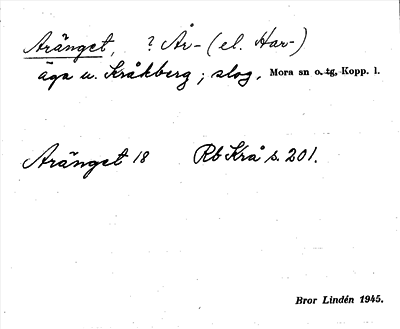 Aränget, ? År- (el. Har-)
äga u. Kråkberg; slog, Mora sn o. tg, Kopp. l.
Aränget 18 Rb Krå s. 201.
Bror Lindén 1945.